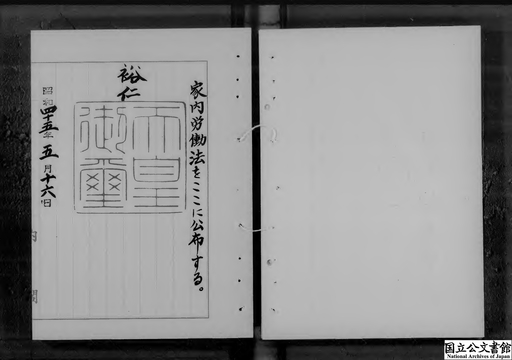 家内労働法をここに公布する。
裕仁
天皇
御璽
昭和四十五年五月十六日
内閣
国立公文書館
National Archives of Japan